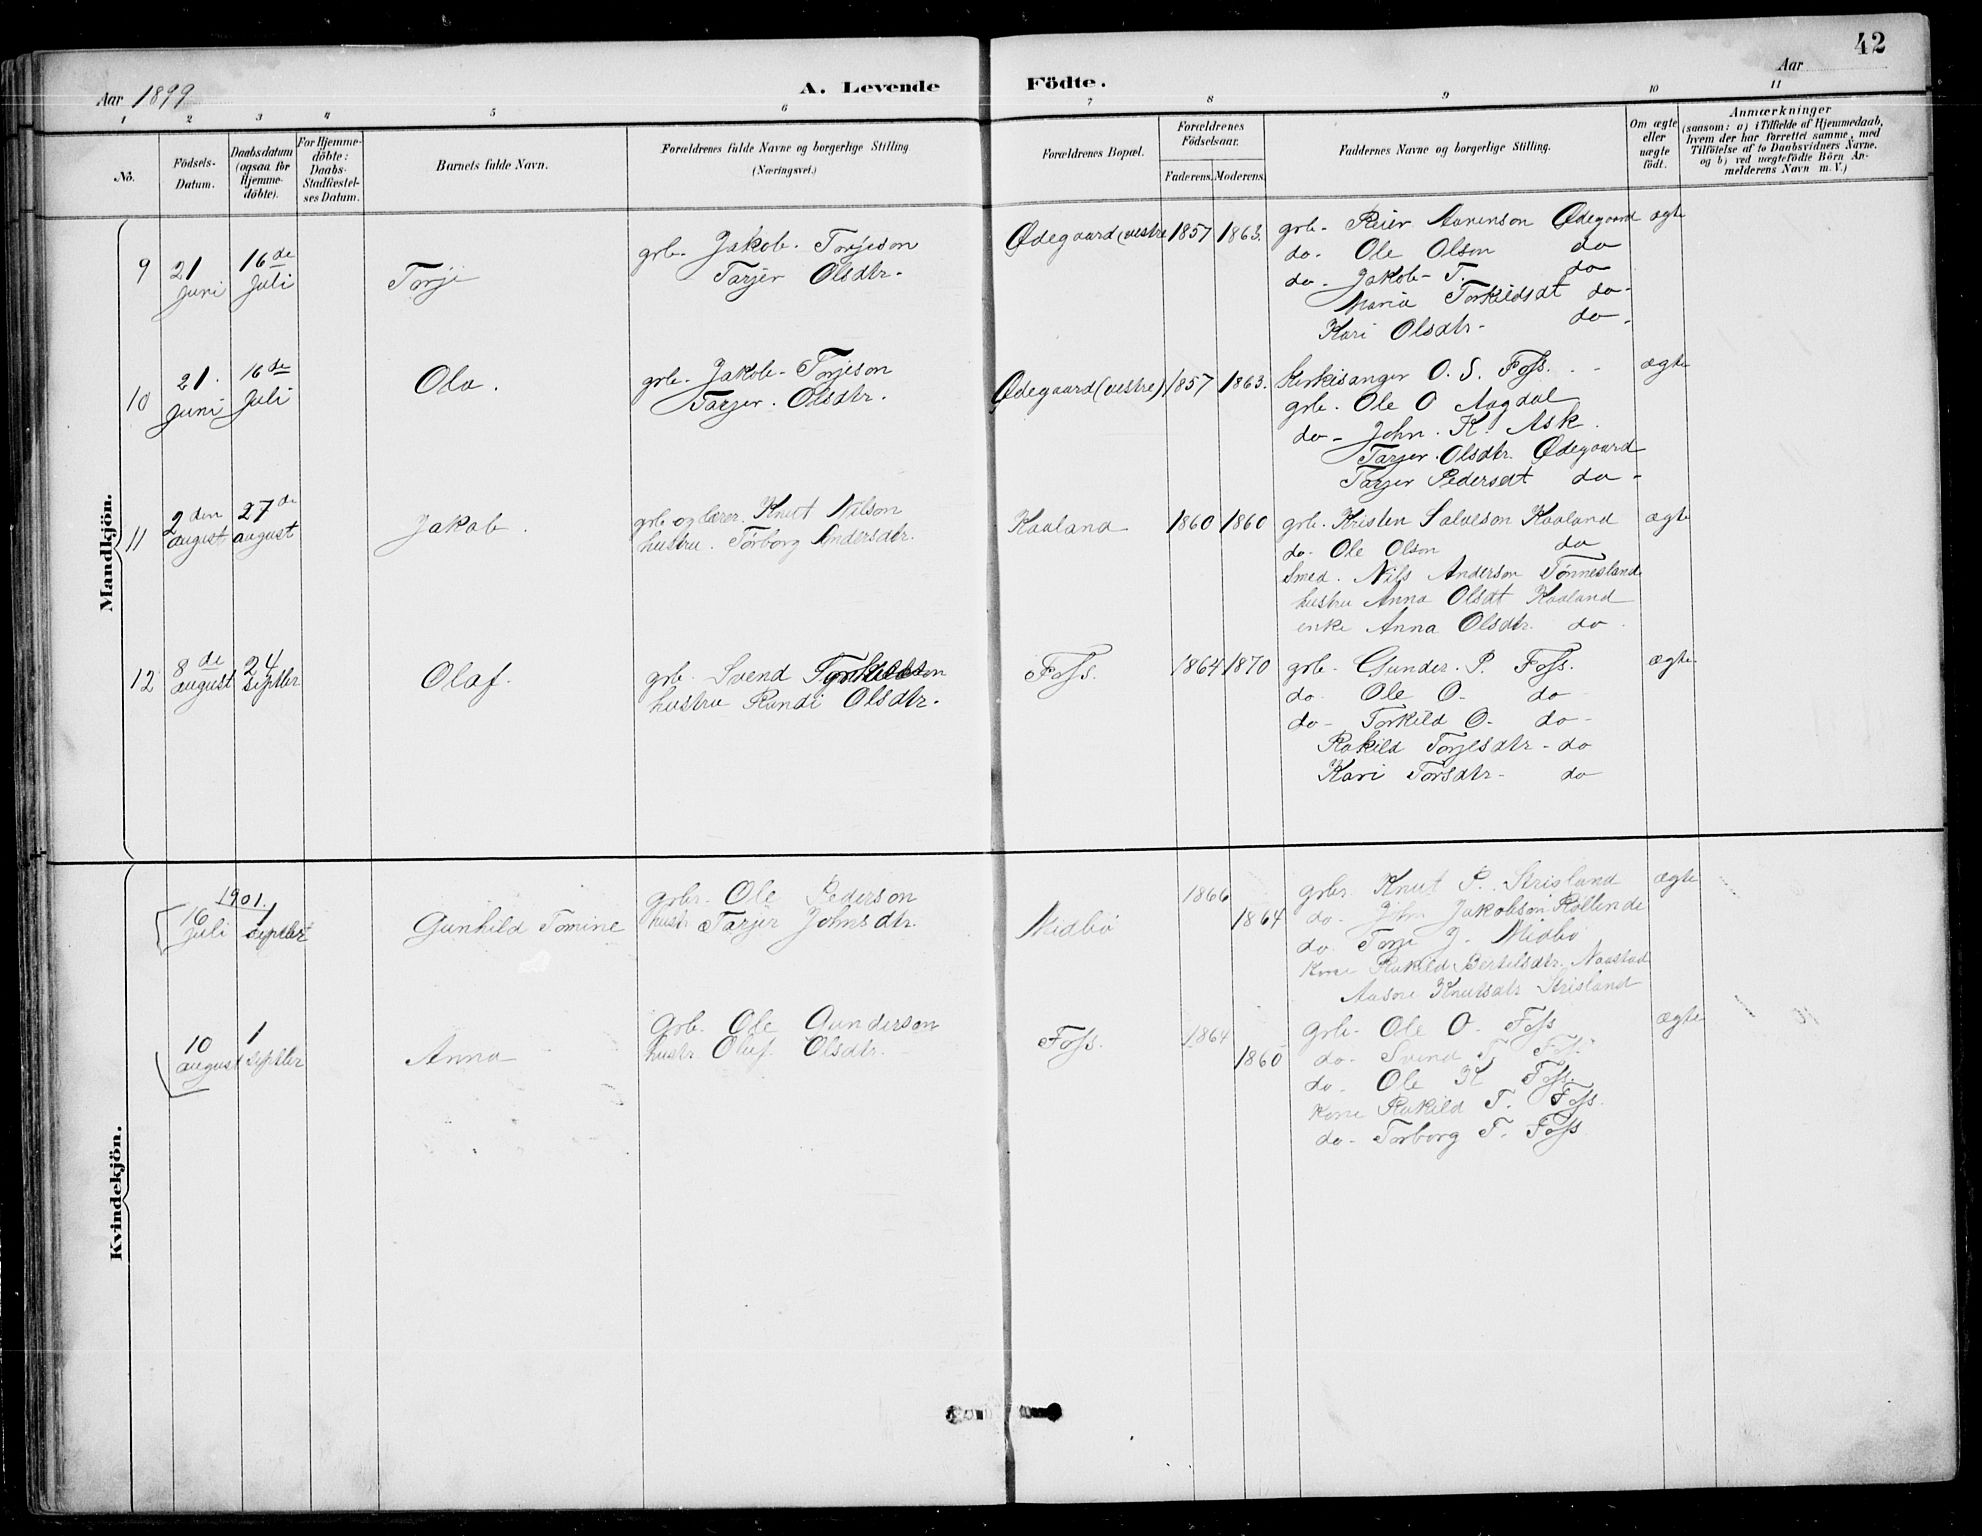 42
Aar 1899
A. Levende Födte.
Aar
1 2 3 4 5 6 7 8 9 10 11
No.
Födsels-Datum.
Daabsdatum (ogsaa for Hjemme-döbte).
For Hjemme-döbte: Daabs-Stadfæstel-ses Datum.
Barnets fulde Navn.
Forældrenes fulde Navne og borgerlige Stilling
(Næringsvei.)
Forældrenes Bopæl.
Forældrenes Födselsaar.
Faderens. Moderens.
Faddernes Navne og borgerlige Stilling.
Om ægte eller uægte födt.
Anmærkninger
(saasom: a) i Tilfælde af Hjemmedaab,
hvem der har forrettet samme, med
Tilföielse af to Daabsvidners Navne.
og b) ved uægtefödte Börn An-
melderens Navn m. V.)
Mandkjön.
9 21 Juni 16de Juli Torje
grb. Jakob. Torjeson
Tarjer Olsdtr.
Ødegaard (vestre 1857 1863.
grb. Reier Aanenson Ødegaard ægte
do. Ole Olson do
do. Jakob T. do
Maria Torkildsdt do.
Kari Olsdtr. do.
10 21. Juni 16de Juli Ola.
grb. Jakob. Torjeson
Tarjer. Olsdtr.
Ødegaard (vestre) 1857 1863.
Kirkisanger O. S. Foss. ægte
grb. Ole O Aagdal
do. John. K. Ask.
Tarjer. Olsdtr. Ødegaard
Tarjer Pedersdt do.
11 2den august 27de august Jakob.
grb og lærer. Knut Nilson
hustru. Torborg Andersdtr.
Kaaland 1860 1860
grb. Kristen Salveson Kaaland ægte
do. Ole Olson do
Smed. Nils Anderson Tønnesland
hustru Anna Olsdt Kaaland
enke Anna Olsdtr. do.
12 8de august 24 septbr Olaf.
grb. Svend Torkildson
hustru Randi Olsdtr.
Foss. 1864 1870
grb. Gunder. P. Foss. ægte
do. Ole O. do
do. Torkild O. do
Rakild Torjesdtr. do
Kari Torsdtr. do
Kvindekjön.
1901.
16 Juli 1 septbr Gunhild Tomine
grbr. Ole Pederson
hustr. Tarjer Johnsdtr.
Midbø 1866 1864
grbr Knut P. Strisland ægte
do. John Jakobson Røllende
do. Torje J. Midbø
Kone Rakild Bertelsdtr. Naastad
Aasne Knutsdtr Strisland
10 august 1 septbr Anna
Grb. Ole Gunderson
hustr. Oluf. Olsdtr.
Foss. 1864 1860
grb. Ole O. Foss ægte
do. Svend T. Foss.
do. Ole K Foss.
Kone Rakild T. Foss.
do. Torborg T. Foss